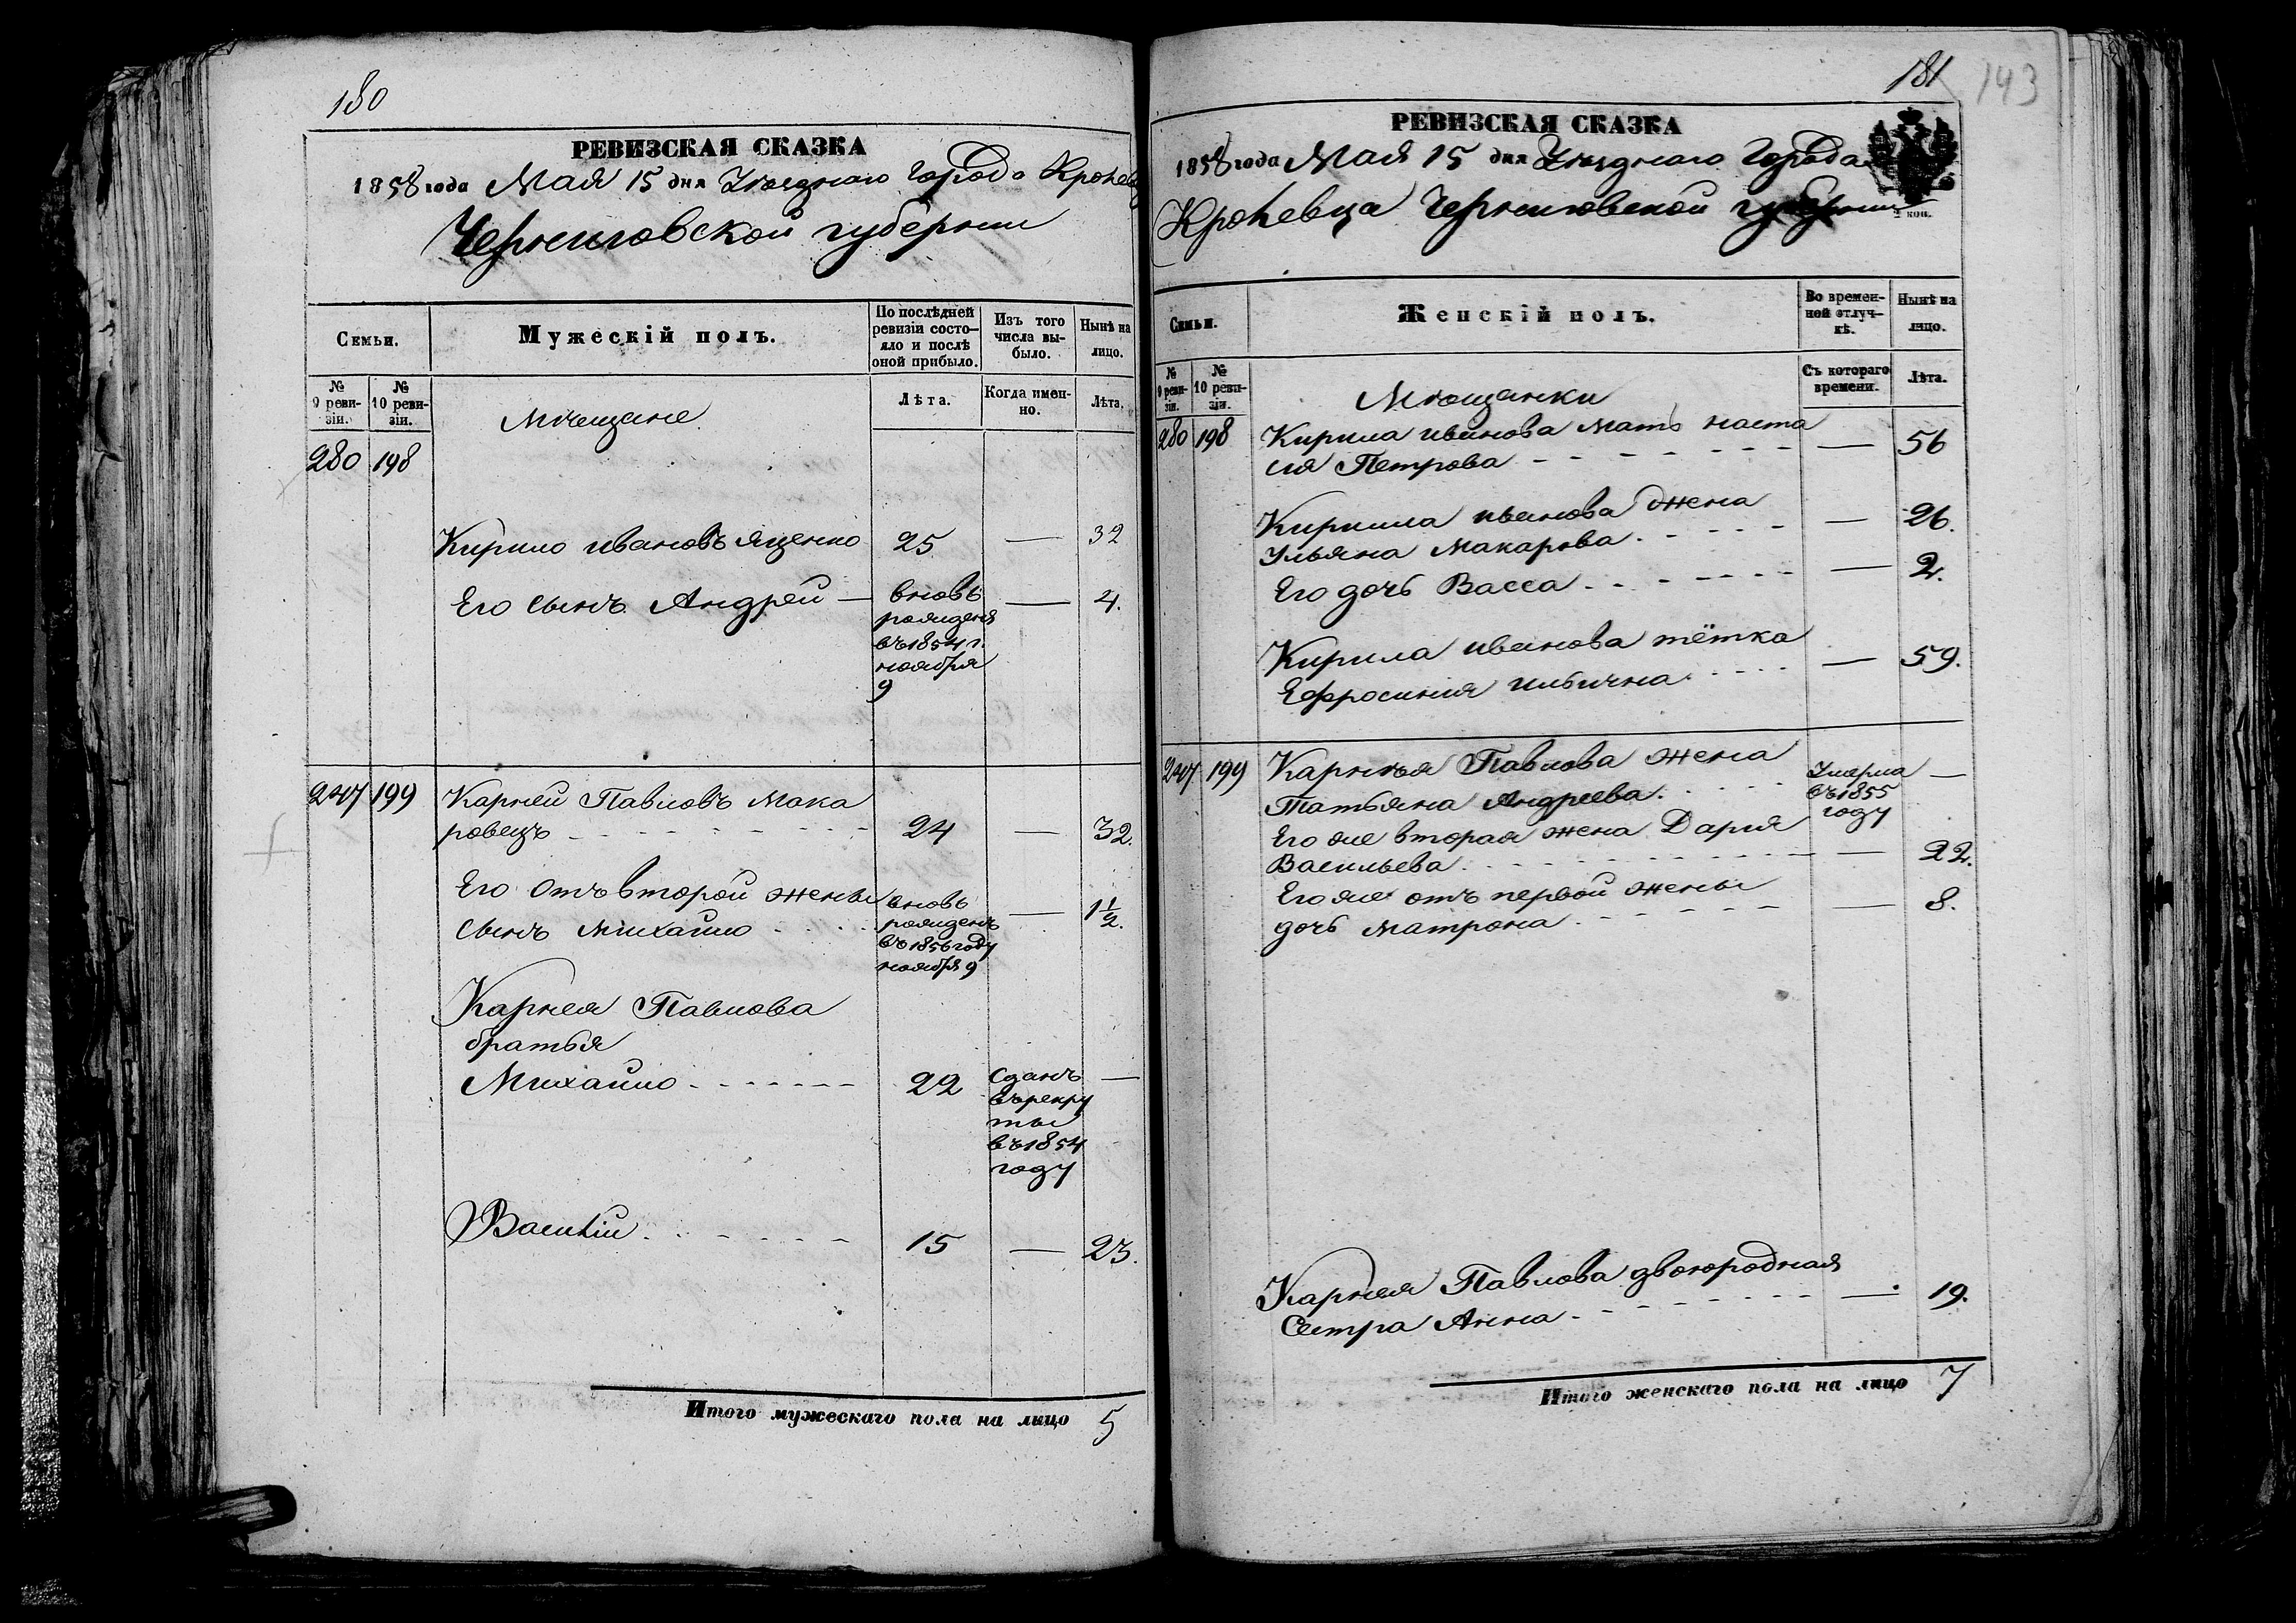 180
РЕВИЗСКАЯ СКАЗКА
1858 года Мая 15 дня Уѣзднаго города Кролевца
Черниговской губерніи
Семьи.
Мужескій полъ.
По послѣдней ревизіи состояло и послѣ оной прибыло.
Изъ того числа выбыло.
Нынѣ на лицо.
№ 9 ревизіи.
№ 10 ревизіи.
Лѣта.
Когда именно.
Лѣта.
Мѣщане
280 198
Кирило Ивановъ Яценко 25 — 32
Его сынъ Андрей — вновь — 4.
рожденъ
въ 1854 г.
ноября
9
247 199 Карней Павловъ Мака
ровецъ 24 — 32.
Его отъ второй жены вновь
сынъ Михайло рожденъ — 1½.
въ 1856 году
ноября 9
Карнея Павлова
братья
Михайло 22 Сданъ —
въ рекру
ты
въ 1854
году
Василій 15 — 23.
Итого мужескаго пола на лицо 5
181 143
РЕВИЗСКАЯ СКАЗКА
1858 года Мая 15 дня Уѣзднаго Города
Кролевца Черниговской губерніи
коп.
Семьи.
Женскій полъ.
Во временной отлучкѣ.
Нынѣ на лицо.
№ 9 ревизіи.
№ 10 ревизіи.
Съ котораго времени.
Лѣта.
Мѣщанки
280 198 Кирила Иванова мать Наста
сія Петрова — 56
Кирила Иванова жена
Ульяна Макарова — 26.
Его дочь Васса — 2.
Кирила Иванова тётка
Ефросинія Ильична — 59.
247 199 Карнея Павлова жена
Татьяна Андреева Умерла —
въ 1855
году
Его же вторая жена Дарія
Васильева — 22.
Его же отъ первой жены
дочь Матрона — 8.
Карнея Павлова двоюродная
Сестра Анна — 19.
Итого женскаго пола на лицо 7